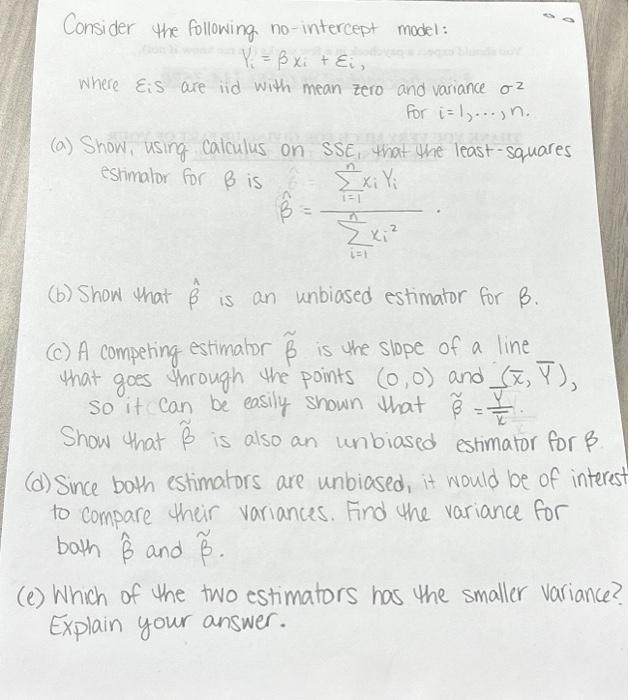 Consider the following no-intercept model:
Yᵢ = βxᵢ + εᵢ,
where εᵢs are iid with mean zero and variance σ²
for i=1,...,n.
(a) Show, using calculus on SSE, that the least-squares
estimator for β is
β̂ = \frac{\sum_{i=1}^{n} xᵢYᵢ}{\sum_{i=1}^{n} xᵢ²}.
(b) Show that β̂ is an unbiased estimator for β.
(c) A competing estimator β̃ is the slope of a line
that goes through the points (0,0) and (x̄, Ȳ),
so it can be easily shown that β̃ = Ȳ/x̄.
Show that β̃ is also an unbiased estimator for β
(d) Since both estimators are unbiased, it would be of interest
to compare their variances. Find the variance for
both β̂ and β̃.
(e) Which of the two estimators has the smaller variance?
Explain your answer.